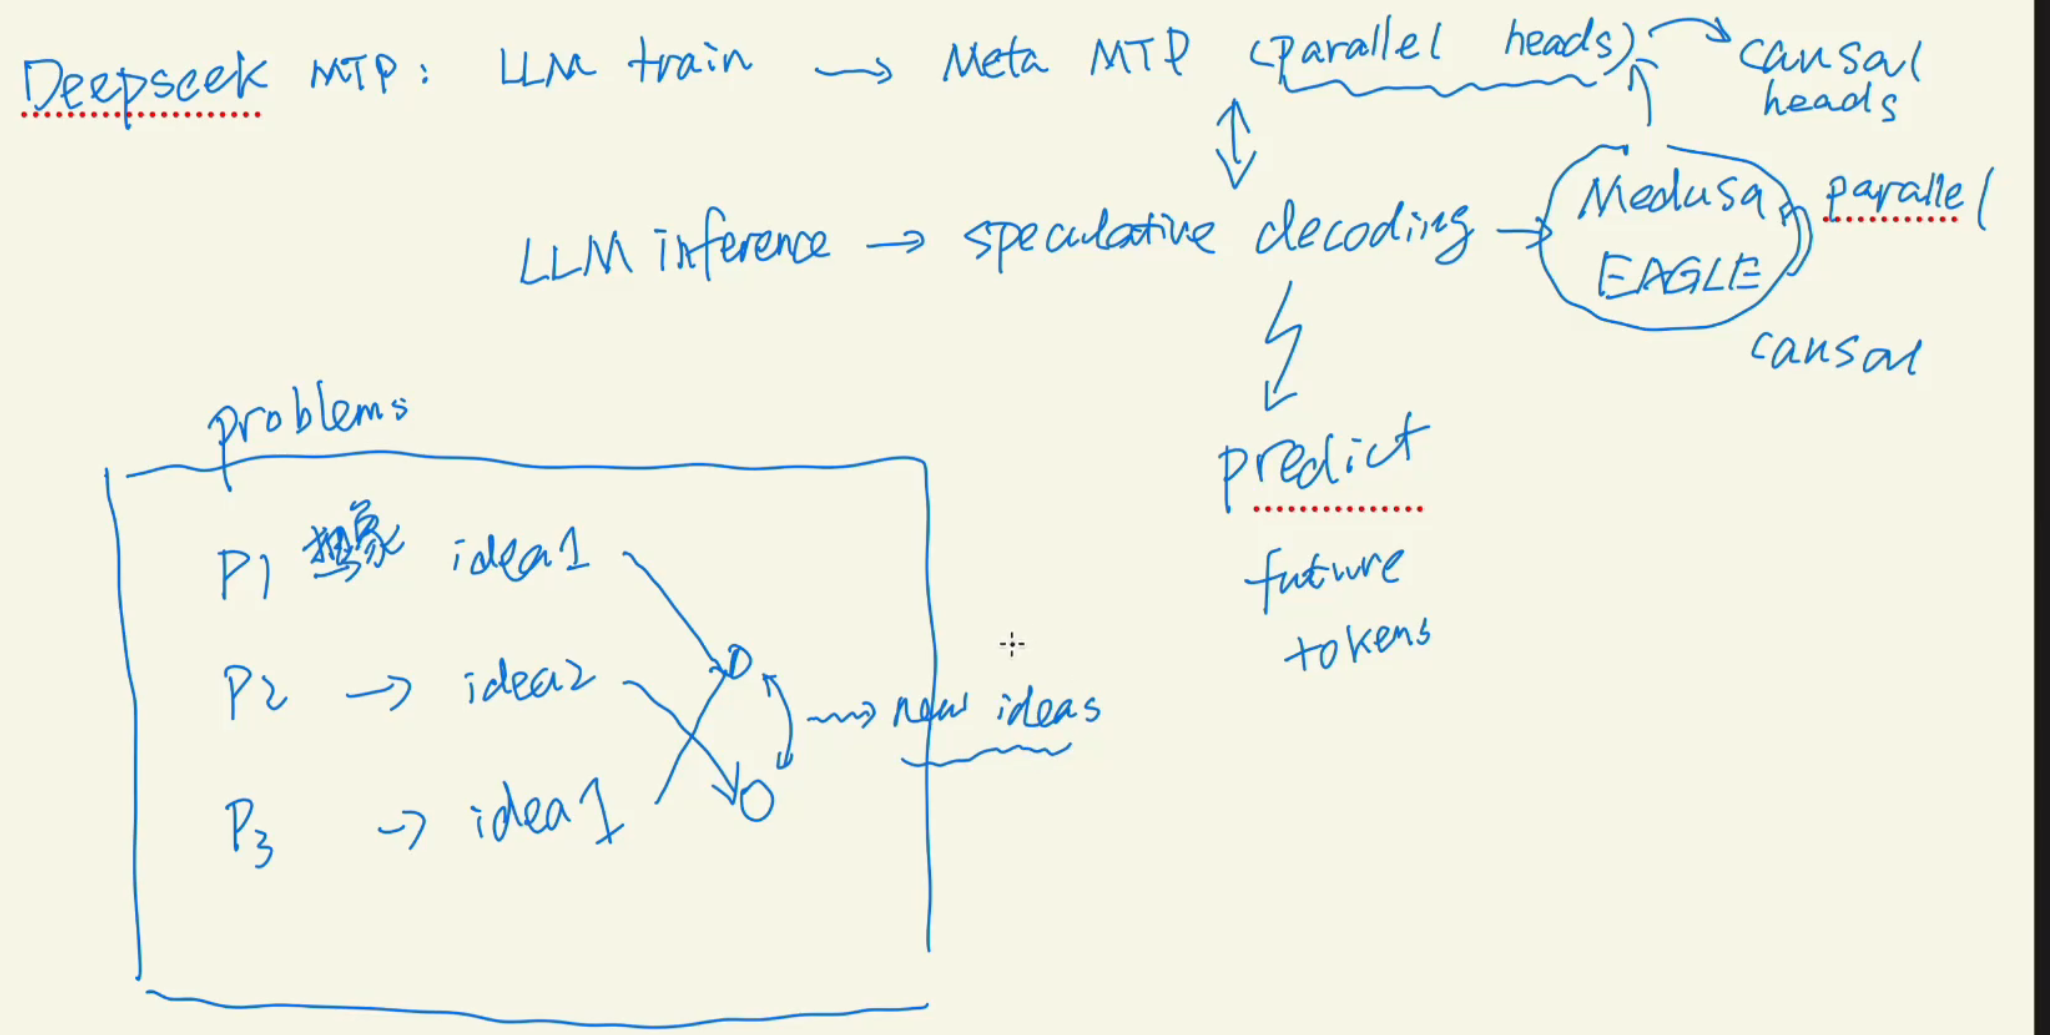 Deepseek MTP: LLM train → Meta MTP (parallel heads) → causal
heads
LLM inference → speculative decoding → Medusa parallel
EAGLE
causal
predict
future
tokens
problems
P1 抽象 idea1
P2 → idea2
→ new ideas
P3 → idea1